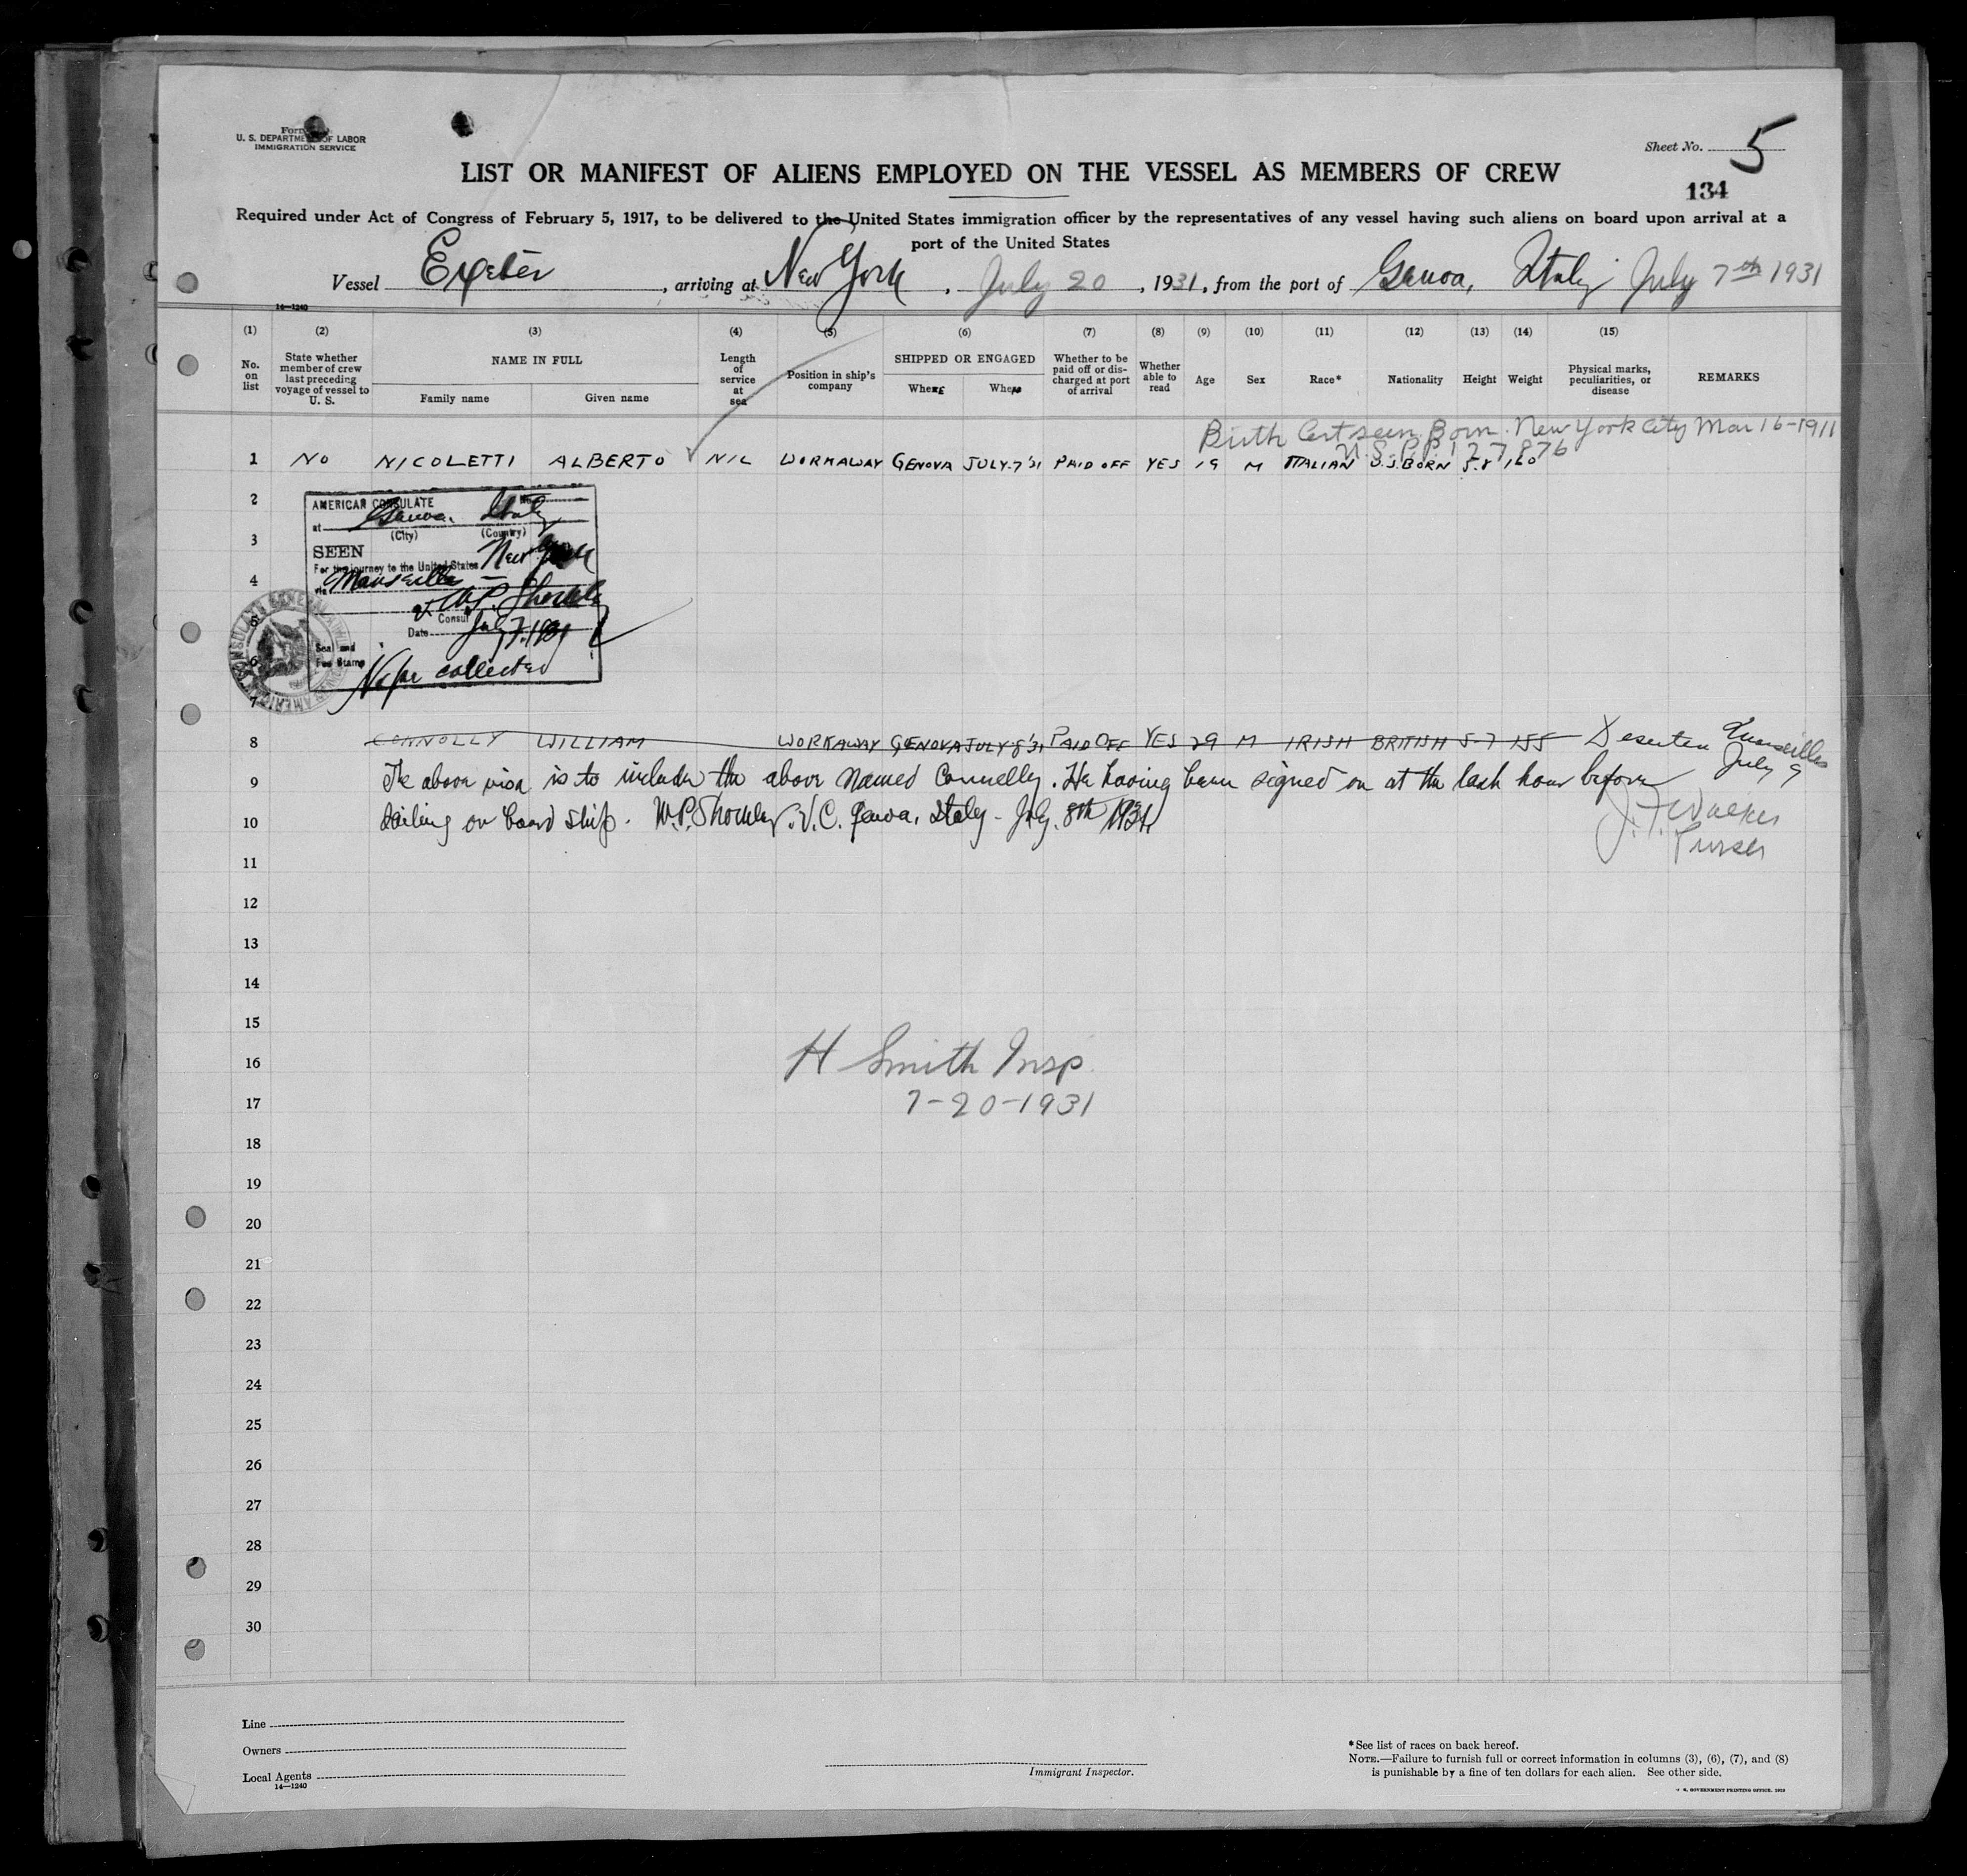 Form
U. S. DEPARTMENT OF LABOR
IMMIGRATION SERVICE
Sheet No. 5
134
LIST OR MANIFEST OF ALIENS EMPLOYED ON THE VESSEL AS MEMBERS OF CREW
Required under Act of Congress of February 5, 1917, to be delivered to the United States immigration officer by the representatives of any vessel having such aliens on board upon arrival at a
port of the United States
Vessel Exeter, arriving at New York, July 20, 1931, from the port of Genoa, Italy July 7th 1931
14—1240
(1) (2) (3) (4) (5) (6) (7) (8) (9) (10) (11) (12) (13) (14) (15)
No. on list
State whether member of crew last preceding voyage of vessel to U. S.
NAME IN FULL
Family name
Given name
Length of service at sea
Position in ship's company
SHIPPED OR ENGAGED
Where
When
Whether to be paid off or discharged at port of arrival
Whether able to read
Age
Sex
Race*
Nationality
Height
Weight
Physical marks, peculiarities, or disease
REMARKS
Birth Cert seen. Born New York City Mar 16-1911
U.S.P.P. 127876
1 NO NICOLETTI ALBERTO NIL WORKAWAY GENOVA JULY.7'31 PAID OFF YES 19 M ITALIAN U.S.BORN 5.8 160
2
3
4
5
6
7
AMERICAN CONSULATE No.
at Genoa, Italy
(City) (Country)
SEEN
For the journey to the United States New York
via Marseille
V. W.P. Shockley
Consul
Date July 7. 1931
Seal and
Fee Stamp
No fee collected
8 CONNOLLY WILLIAM WORKAWAY GENOVA JULY 8'31 PAID OFF YES 29 M IRISH BRITISH 5-7 155 Deserted Marseilles
July 9
9 The above visa is to include the above named Connelly. He having been signed on at the last hour before
10 sailing on board ship. W.P. Shockley. V.C. Genoa, Italy - July. 8th 1931.
J. F. Walker
Purser
11
12
13
14
15
16
H Smith Insp.
17
7-20-1931
18
19
20
21
22
23
24
25
26
27
28
29
30
Line
Owners
Local Agents
14—1240
Immigrant Inspector.
*See list of races on back hereof.
NOTE.—Failure to furnish full or correct information in columns (3), (6), (7), and (8)
is punishable by a fine of ten dollars for each alien. See other side.
U. S. GOVERNMENT PRINTING OFFICE. 1929